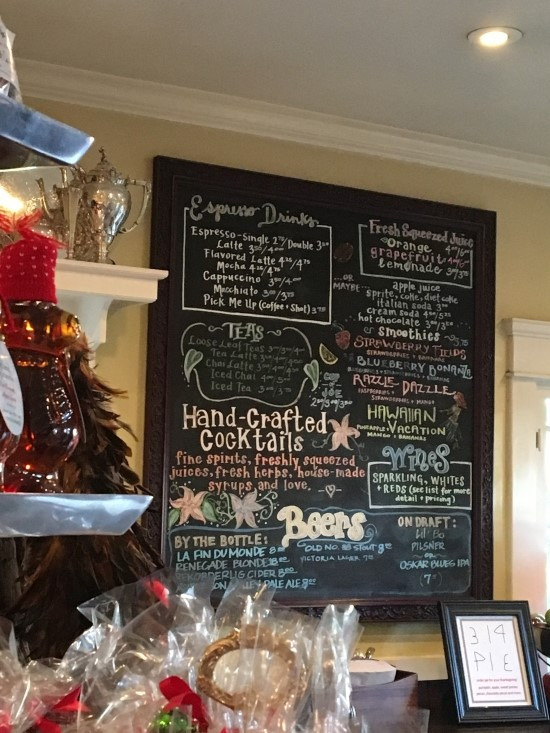 Espresso Drinks
Espresso-Single 2.75/Double 3.00
Latte 3.50/4.00
Flavored Latte 4.25/4.75
Mocha 4.25/4.75
Cappuccino 3.50/4.00
Macchiato 3.00/3.50
Pick Me Up (Coffee + Shot) 3.75
Fresh Squeezed Juice
Orange 4.00/5.00
grapefruit 4.00/5.00
lemonade
...OR MAYBE...
apple juice
sprite, coke, diet coke
italian soda
cream soda
hot chocolate
or smoothies
STRAWBERRY FIELDS
STRAWBERRIES + BANANAS
BLUEBERRY BONANZA
RAZZLE-DAZZLE
RASPBERRIES +
STRAWBERRIES + MANGO
HAWAIIAN
VACATION
PINEAPPLE +
MANGO + BANANAS
TEAS
Loose Leaf Teas
Tea Latte
Chai Latte
Iced Chai
Iced Tea
CUP of JOE
Hand-Crafted
Cocktails
fine spirits, freshly squeezed
juices, fresh herbs, house-made
syrups and love.
Wines
SPARKLING, WHITES
+ REDS (see list for more
detail + pricing)
Beers
BY THE BOTTLE:
LA FIN DU MONDE 8.00
RENEGADE BLONDE
REKORDERLIG CIDER
PALE ALE
OLD NO. 38 STOUT
VICTORIA LAGER
ON DRAFT:
PILSNER
OSKAR BLUES IPA
314
PIE